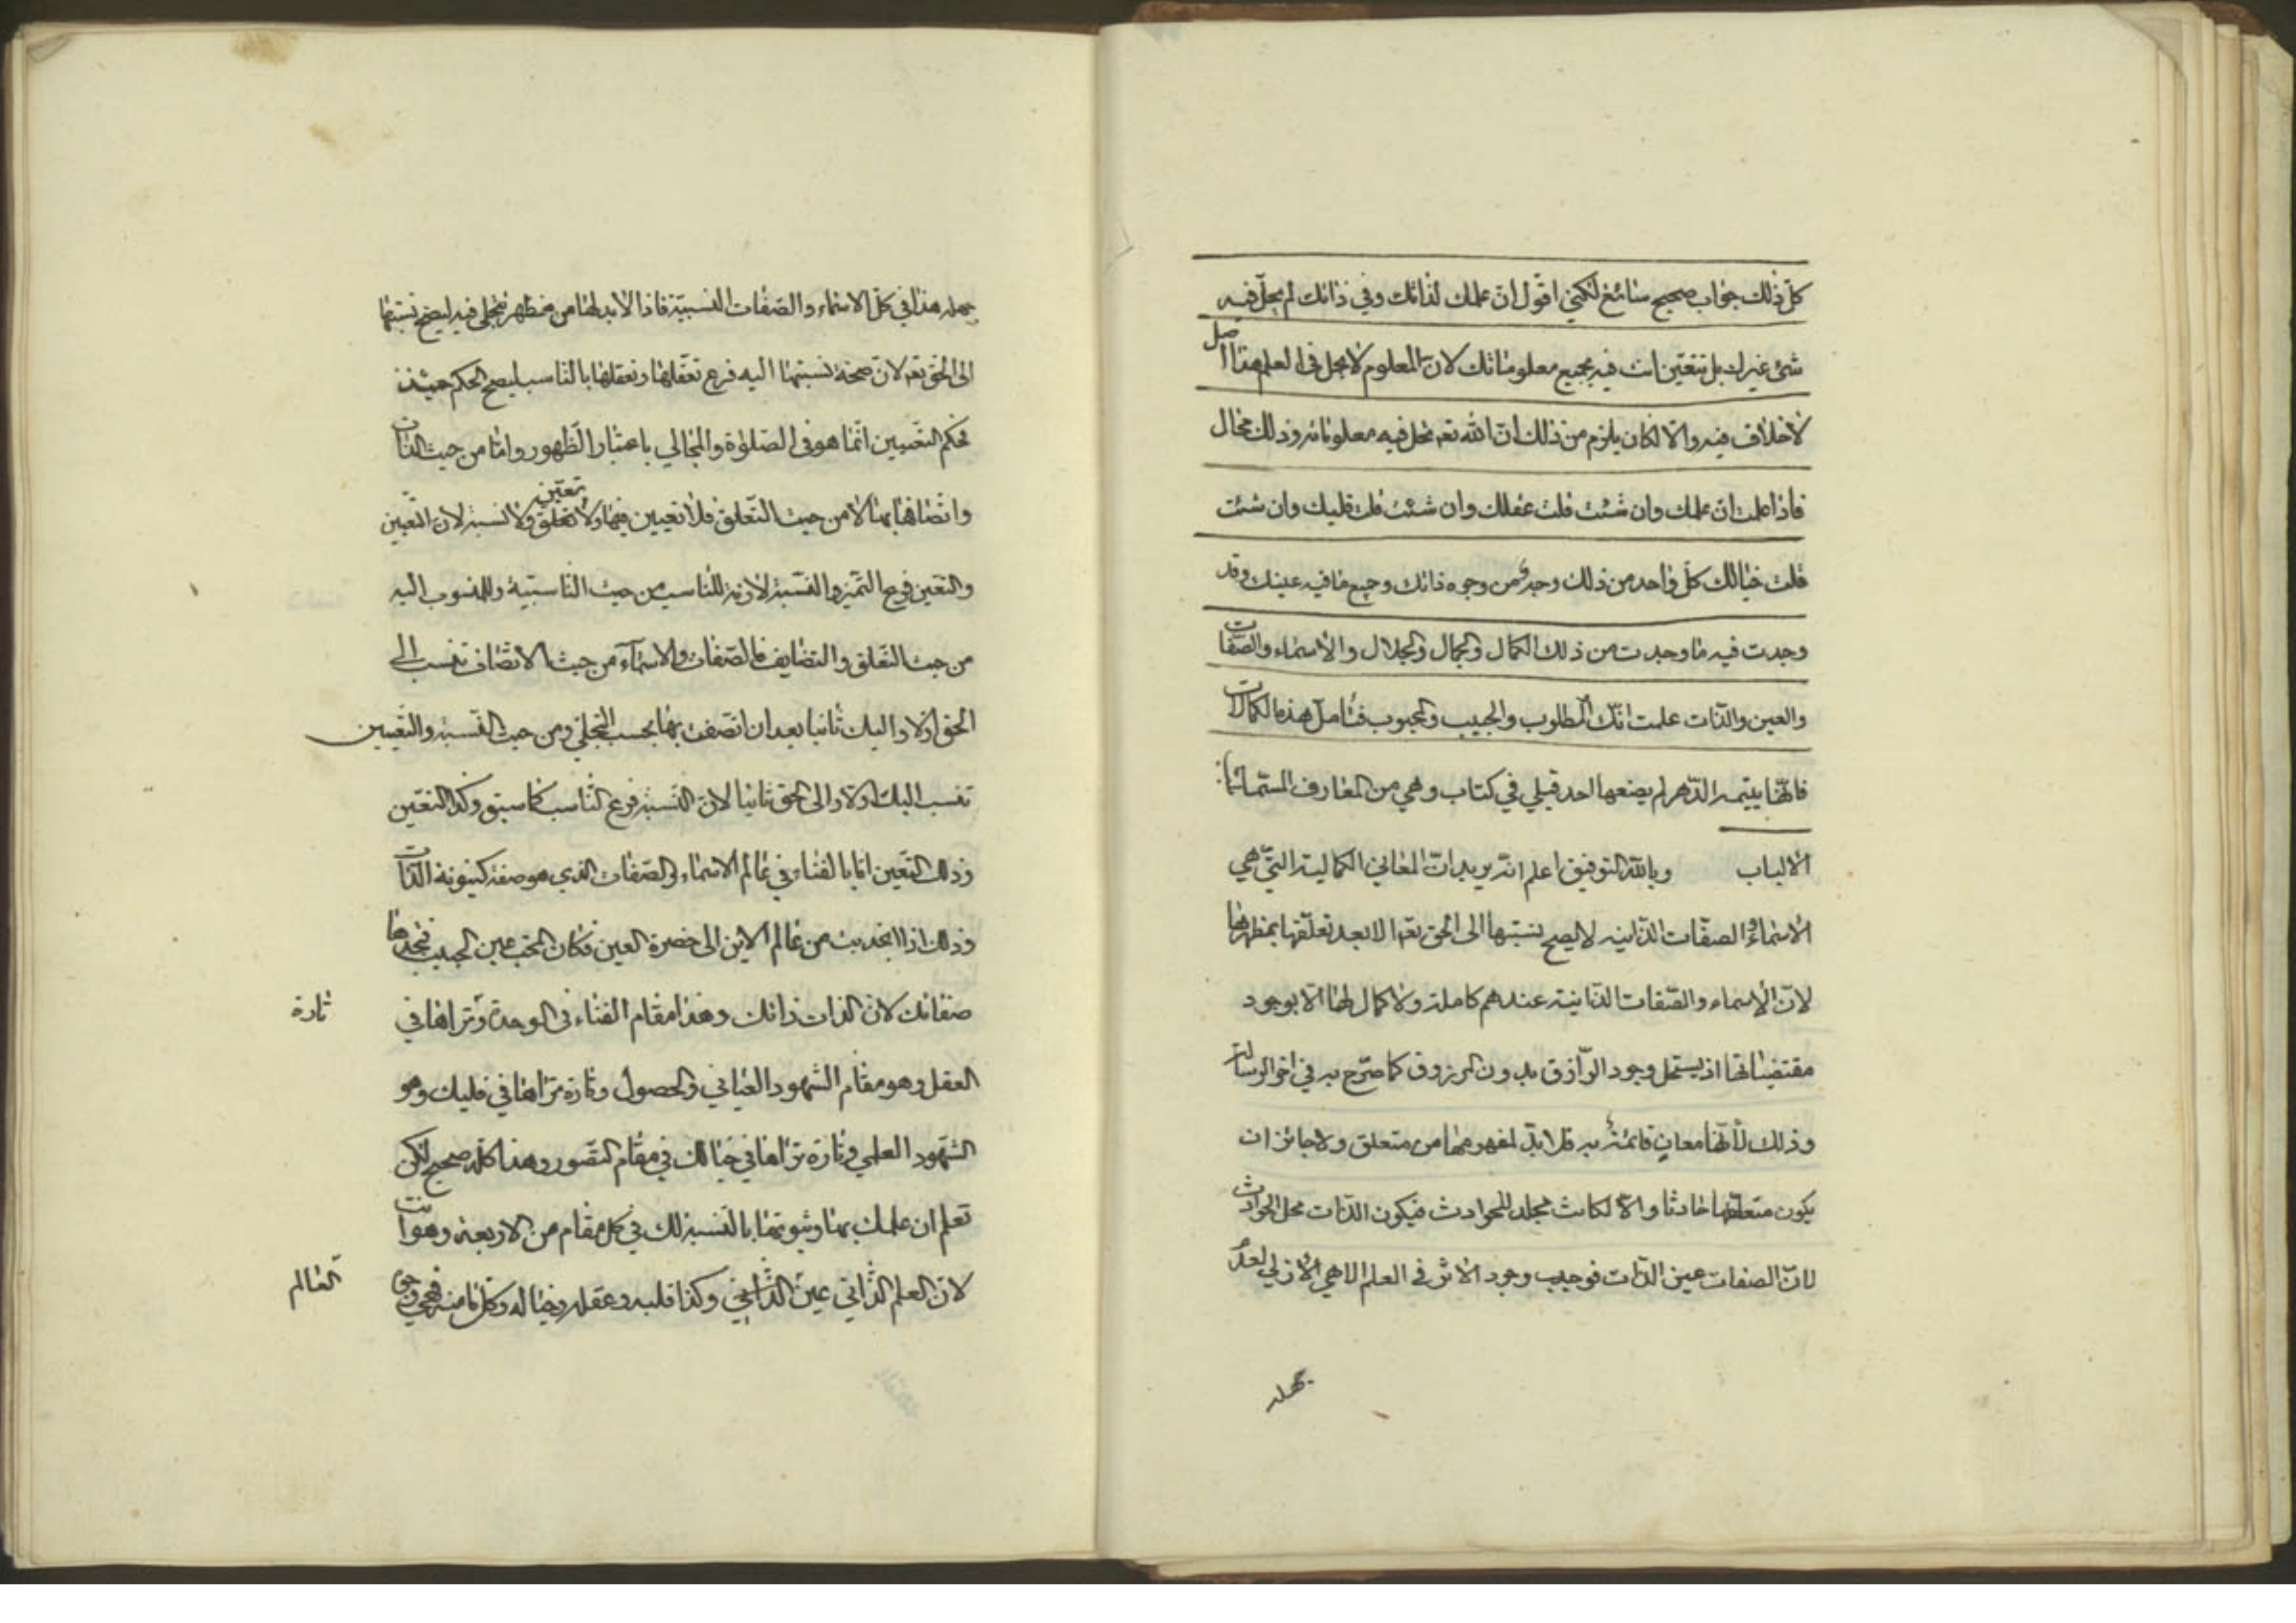 كل ذلك جواب صحيح سائغ لكني اقول ان علمك لذاتك وفي ذاتك لم يحل فيه
شئ غيرك بل تتعين انت فيه بجميع معلوماتك لان المعلوم لا يحل في العلم هذا اصل
لا خلاف فيه والا لكان يلزم من ذلك ان الله تعه تحل فيه معلوماته وذلك محال
فاذا علمت ان علمك وان شئت قلت عقلك وان شئت قلت قلبك وان شئت
قلت خيالك كل واحد من ذلك وجه من وجوه ذاتك وجميع ما فيه عينك وقد
وجدت فيه ما وجدت من ذلك الكمال والجمال والجلال والاسماء والصفات
والعين والذات علمت انك المطلوب والحبيب والمحبوب فتامل هذه الكمالات
فانها يتيمة الدهر لم يضعها احد قبلي في كتاب وهي من المعارف
الالباب وبالله التوفيق اعلم انه يريد ان المعاني الكمالية التي هي
الاسماء والصفات الذاتية لا يصح نسبتها الى الحق تعه الا بعد تعلقها بمظهرها
لان الاسماء والصفات الذاتية عندهم كاملة ولا كمال لها الا بوجود
مقتضياتها اذ يستحل وجود الرازق بدون المرزوق كما صرح به في اخر الرسالة
وذلك لانها معان قائمة به فلا بد لمفهومها من متعلق ولا جائز ان
يكون متعلقها حادثا والا لكانت محلا للحوادث فيكون الذات محل الحوادث
لان الصفات عين الذات فوجب وجود الاثر في العلم الالهي الازلي لعدم
جهله
جهله هذا في كل الاسماء والصفات النسبية فاذا لابد لها من مظهر تتجلى فيه ليصح نسبتها
الى الحق تعه لان صحة نسبتها اليه فرع تعقلها وتعقلها بالناسب ليصح الحكم حينئذ
فحكم التعيين انما هو في والمجالي باعتبار الظهور واما من حيث الذات
واتصافها بها لا من حيث التعلق فلا تعيين فيها ولا تعين ولا تعلق ولا نسبة لان التعيين
والتعين فرع التميز والنسبة لازمة للناسب من حيث الناسبية وللمنسوب اليه
من حيث التعلق والتضايف فالصفات والاسماء من حيث الاتصاف تنسب الى
الحق اولا واليك ثانيا بعد ان اتصفت بها بحسب التجلي ومن حيث النسبة والتعيين
تنسب اليك اولا والى الحق ثانيا لان النسبة فرع الناسب كما سبق وكذا التعين
وذلك التعين اما بالفناء في عالم الاسماء والصفات الذي هو صفة كينونة الذات
وذلك اذا انجذبت من عالم الاين الى حضرة العين فكان المحب عين الحبيب فتجدها
صفاتك لان الذات ذاتك وهذا مقام الفناء في الوحدة وتراها في تارة
العقل وهو مقام الشهود العياني والحصول وتارة تراها في قلبك وهو
الشهود العلمي وتارة تراها في خيالك في مقام التصور وهذا كله صحيح لكن
تعلم ان علمك بها وثبوتها بالنسبة لك في كل مقام من الاربعة وهو انت
لان العلم الذاتي عين وكذا قلبه وعقله وخياله وكل ما منه فهي وجوه العالم